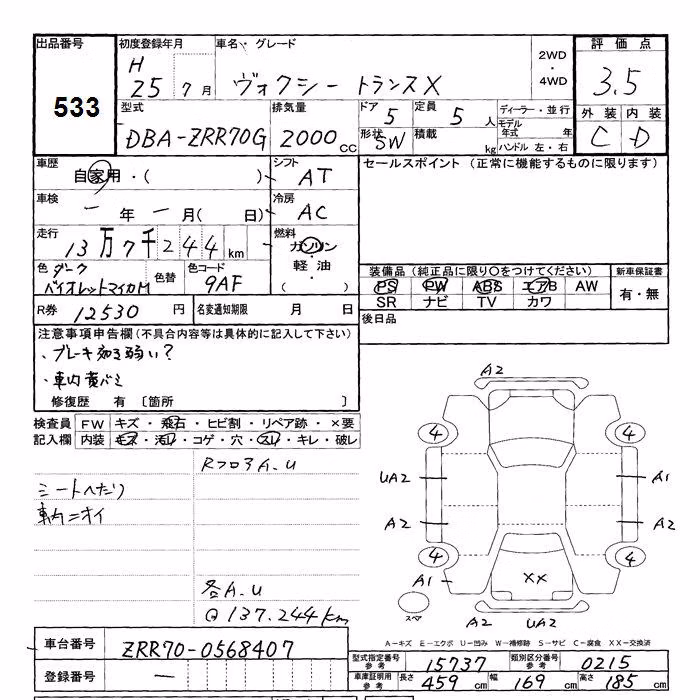 出品番号 初度登録年月 車名・グレード 2WD・4WD 評価点
533 H 25 7月 ヴォクシー トランスX 3.5
型式 排気量 ドア 定員 ディーラー・並行 外装 内装
DBA-ZRR70G 2000cc 5 5人 モデル年式 年 C D
形状 SW 積載 kg ハンドル 左・右
車歴 自家用・( ) シフト AT セールスポイント (正常に機能するものに限ります)
車検 ー年 ー月( 日) 冷房 AC
走行 13万7千244km 燃料 ガソリン・軽油・( )
色 ダークバイオレットマイカM 色替 色コード 9AF
装備品 (純正品に限り○をつけてください) 新車保証書
PS PW ABS エアB AW 有・無
SR ナビ TV カワ
R券 12530円 名変通知期限 月 日
後日品
注意事項申告欄(不具合内容等は具体的に記入して下さい)
・ブレーキ効き弱い?
・車内黄バミ
修復歴 有 〔箇所 〕
検査員記入欄 FW キズ・飛石・ヒビ割・リペア跡・×要
内装 キズ・汚レ・コゲ・穴・スレ・キレ・破レ
RフロアA.U
シートへたり
車内ニオイ
各A.U
Q 137.244km
A2
4 4
UA2 A1
A2 A2
4 4
A1 XX
スペア
A2 UA2
A-キズ E-エクボ U-凹み W-補修跡 S-サビ C-腐食 XX-交換済
車台番号 ZRR70-0568407
登録番号 ー
型式指定番号 参考 15737 類別区分番号 参考 0215
車庫証明用 参考 長さ 459cm 幅 169cm 高さ 185cm